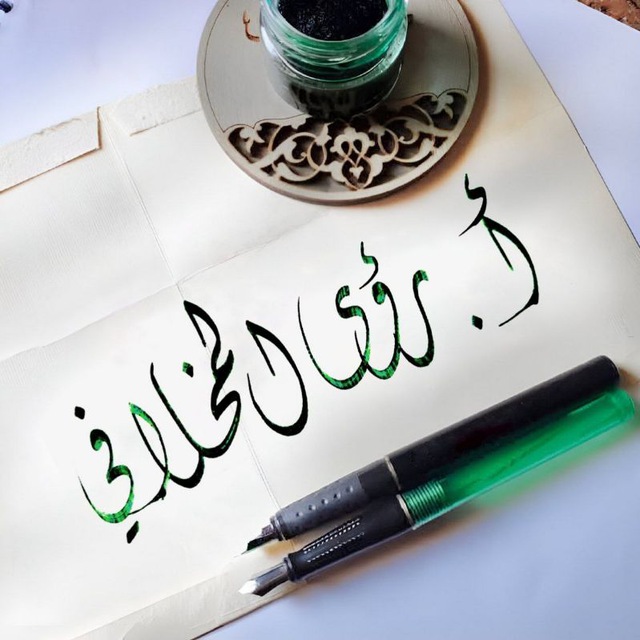 أ. رؤى المخلافي